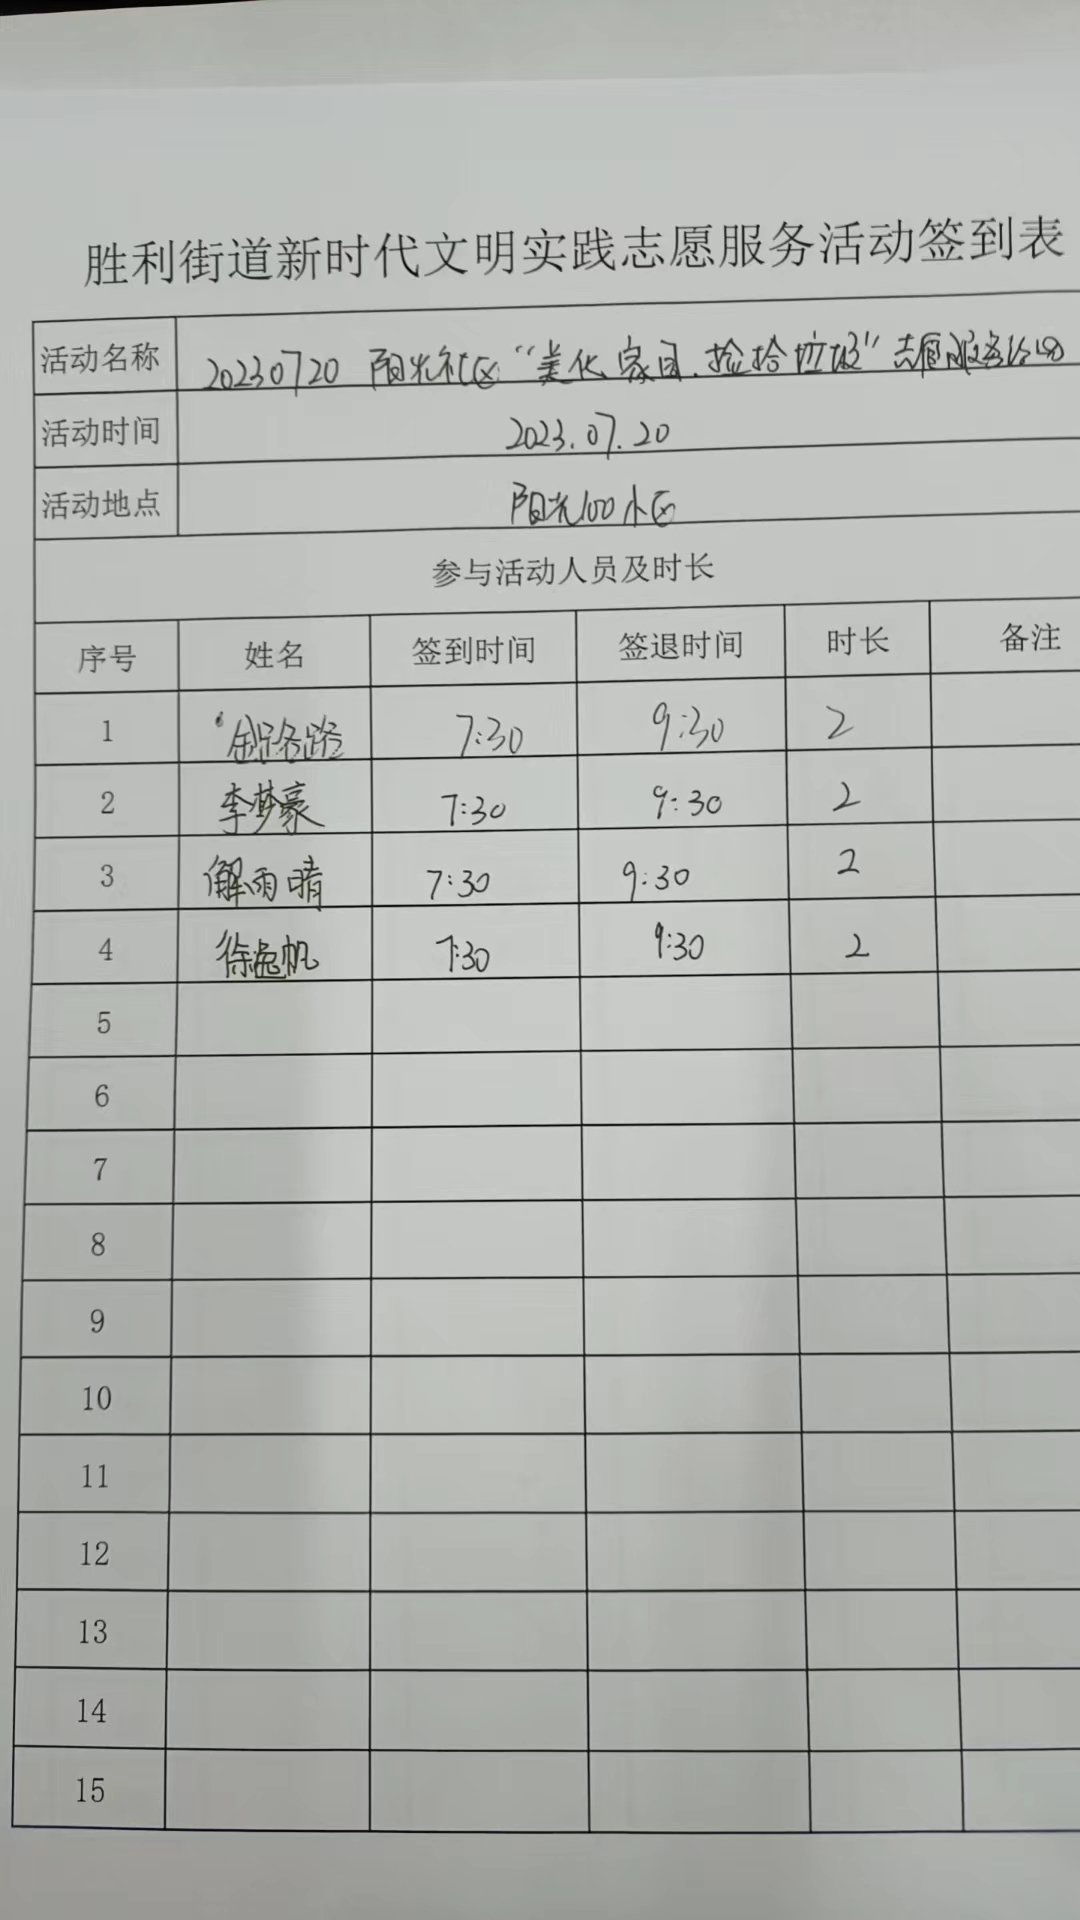 胜利街道新时代文明实践志愿服务活动签到表
活动名称 20230720 阳光社区“美化家园.捡拾垃圾”志愿服务活动
活动时间 2023.07.20
活动地点 阳光100小区
参与活动人员及时长
序号 姓名 签到时间 签退时间 时长 备注
1 7:30 9:30 2
2 李梦豪 7:30 9:30 2
3 解雨晴 7:30 9:30 2
4 徐逸帆 7:30 9:30 2
5
6
7
8
9
10
11
12
13
14
15